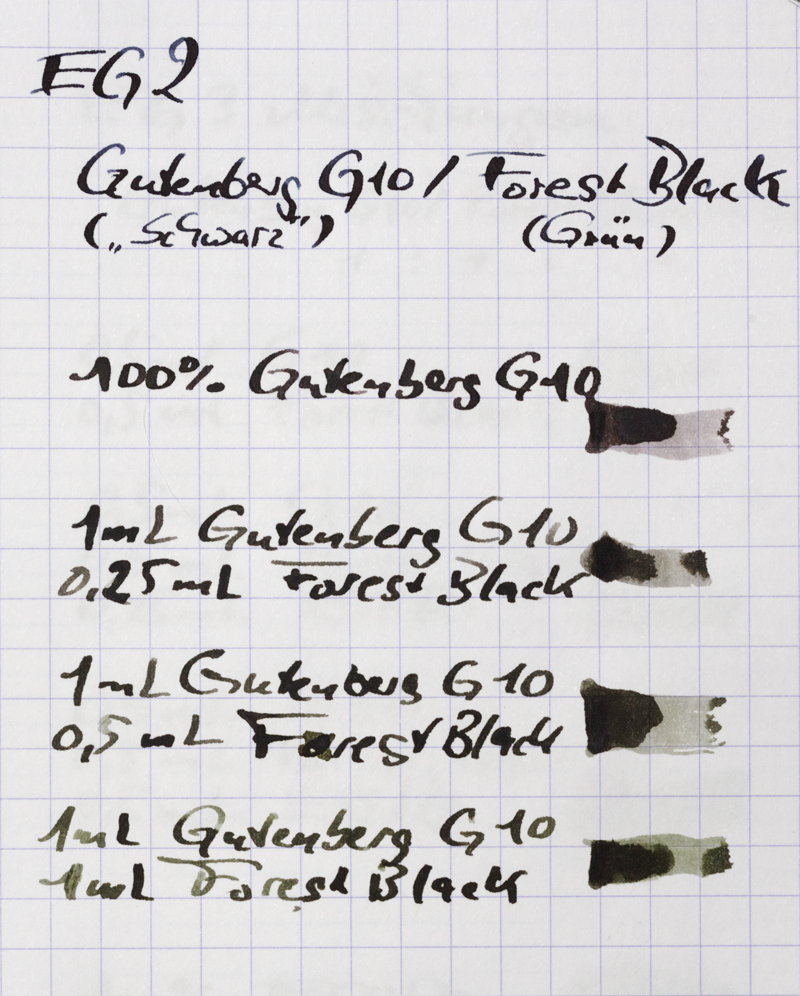 EG2
Gutenberg G10 / Forest Black
(„Schwarz") (Grün)
100% Gutenberg G10
1mL Gutenberg G10
0,25mL Forest Black
1mL Gutenberg G10
0,5mL Forest Black
1mL Gutenberg G10
1mL Forest Black